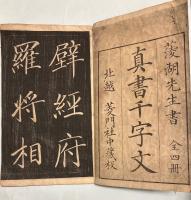 菱湖先生書 全四冊
真書千字文
北越 菱門社中藏板
壁經府
羅將相